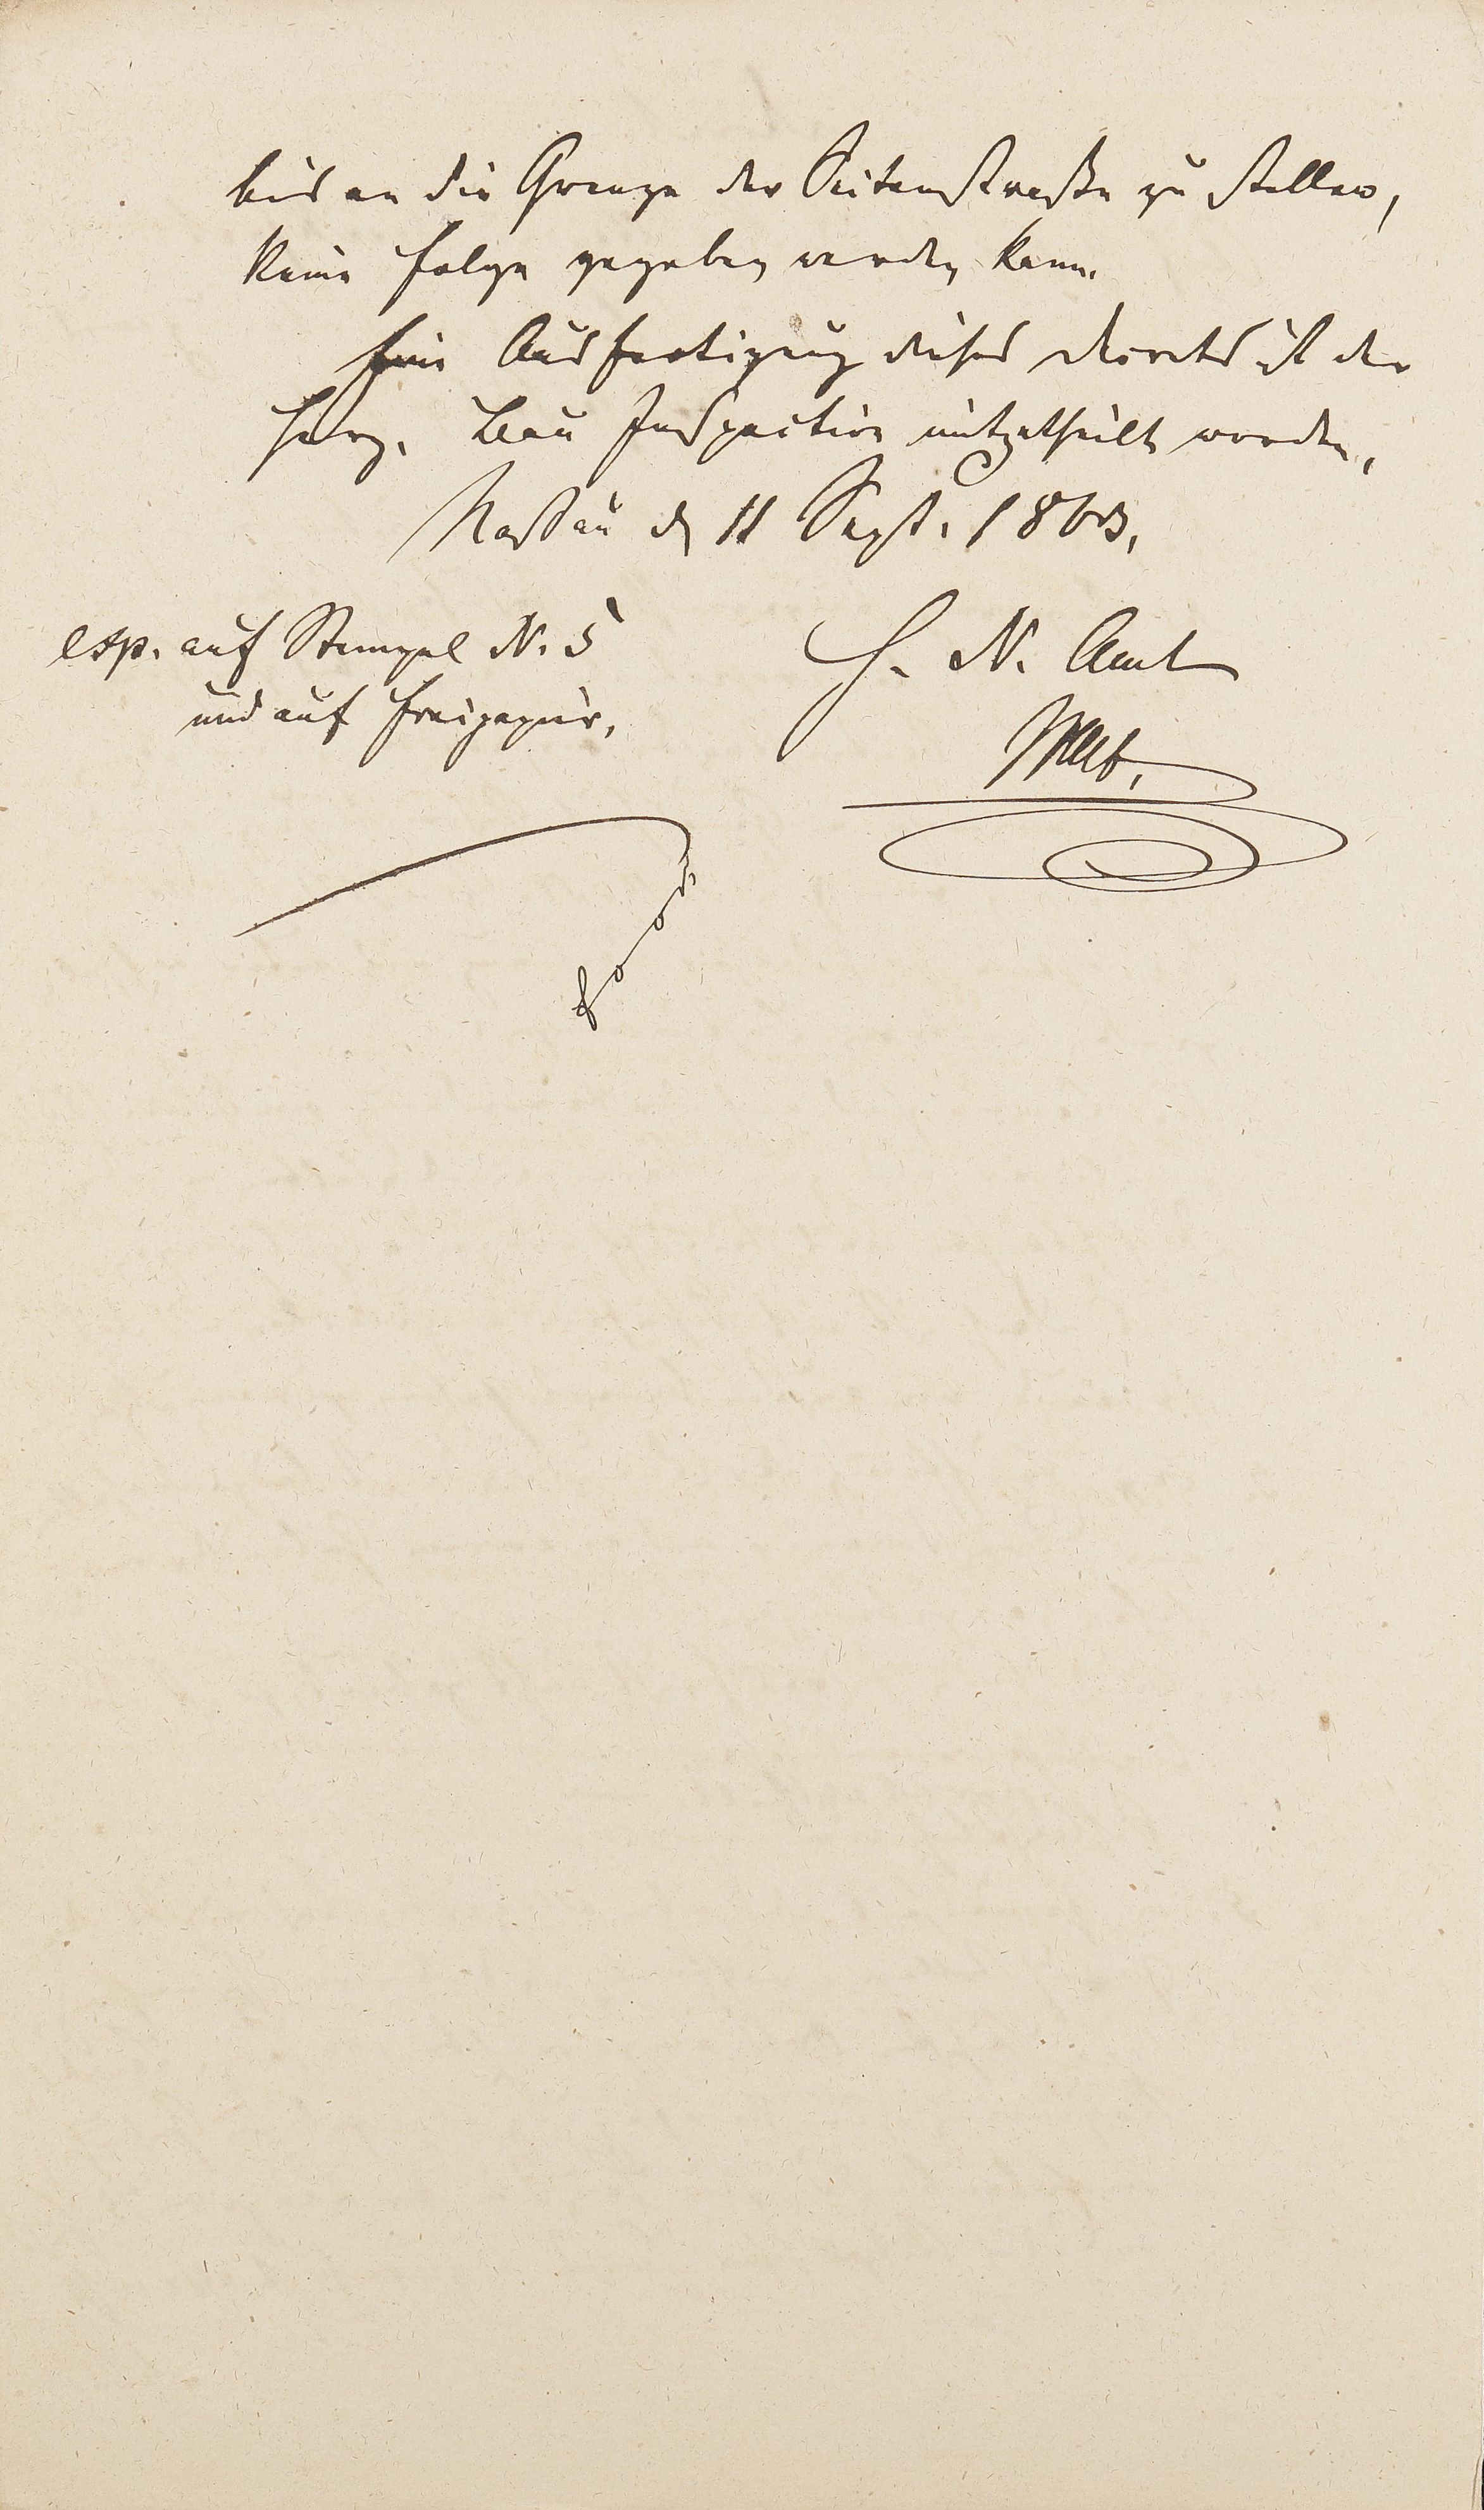 bis an die Grenze der Seitenstraße zu stellen,
keine Folge gegeben werden kann.
Eine Ausfertigung dieses Decrets ist der
Herz. Bau Inspection mitgetheilt worden,
Nassau d 11 Sept. 1863,
exp. auf Stempel N. 5
und auf Freipapier,
H. N. Amt